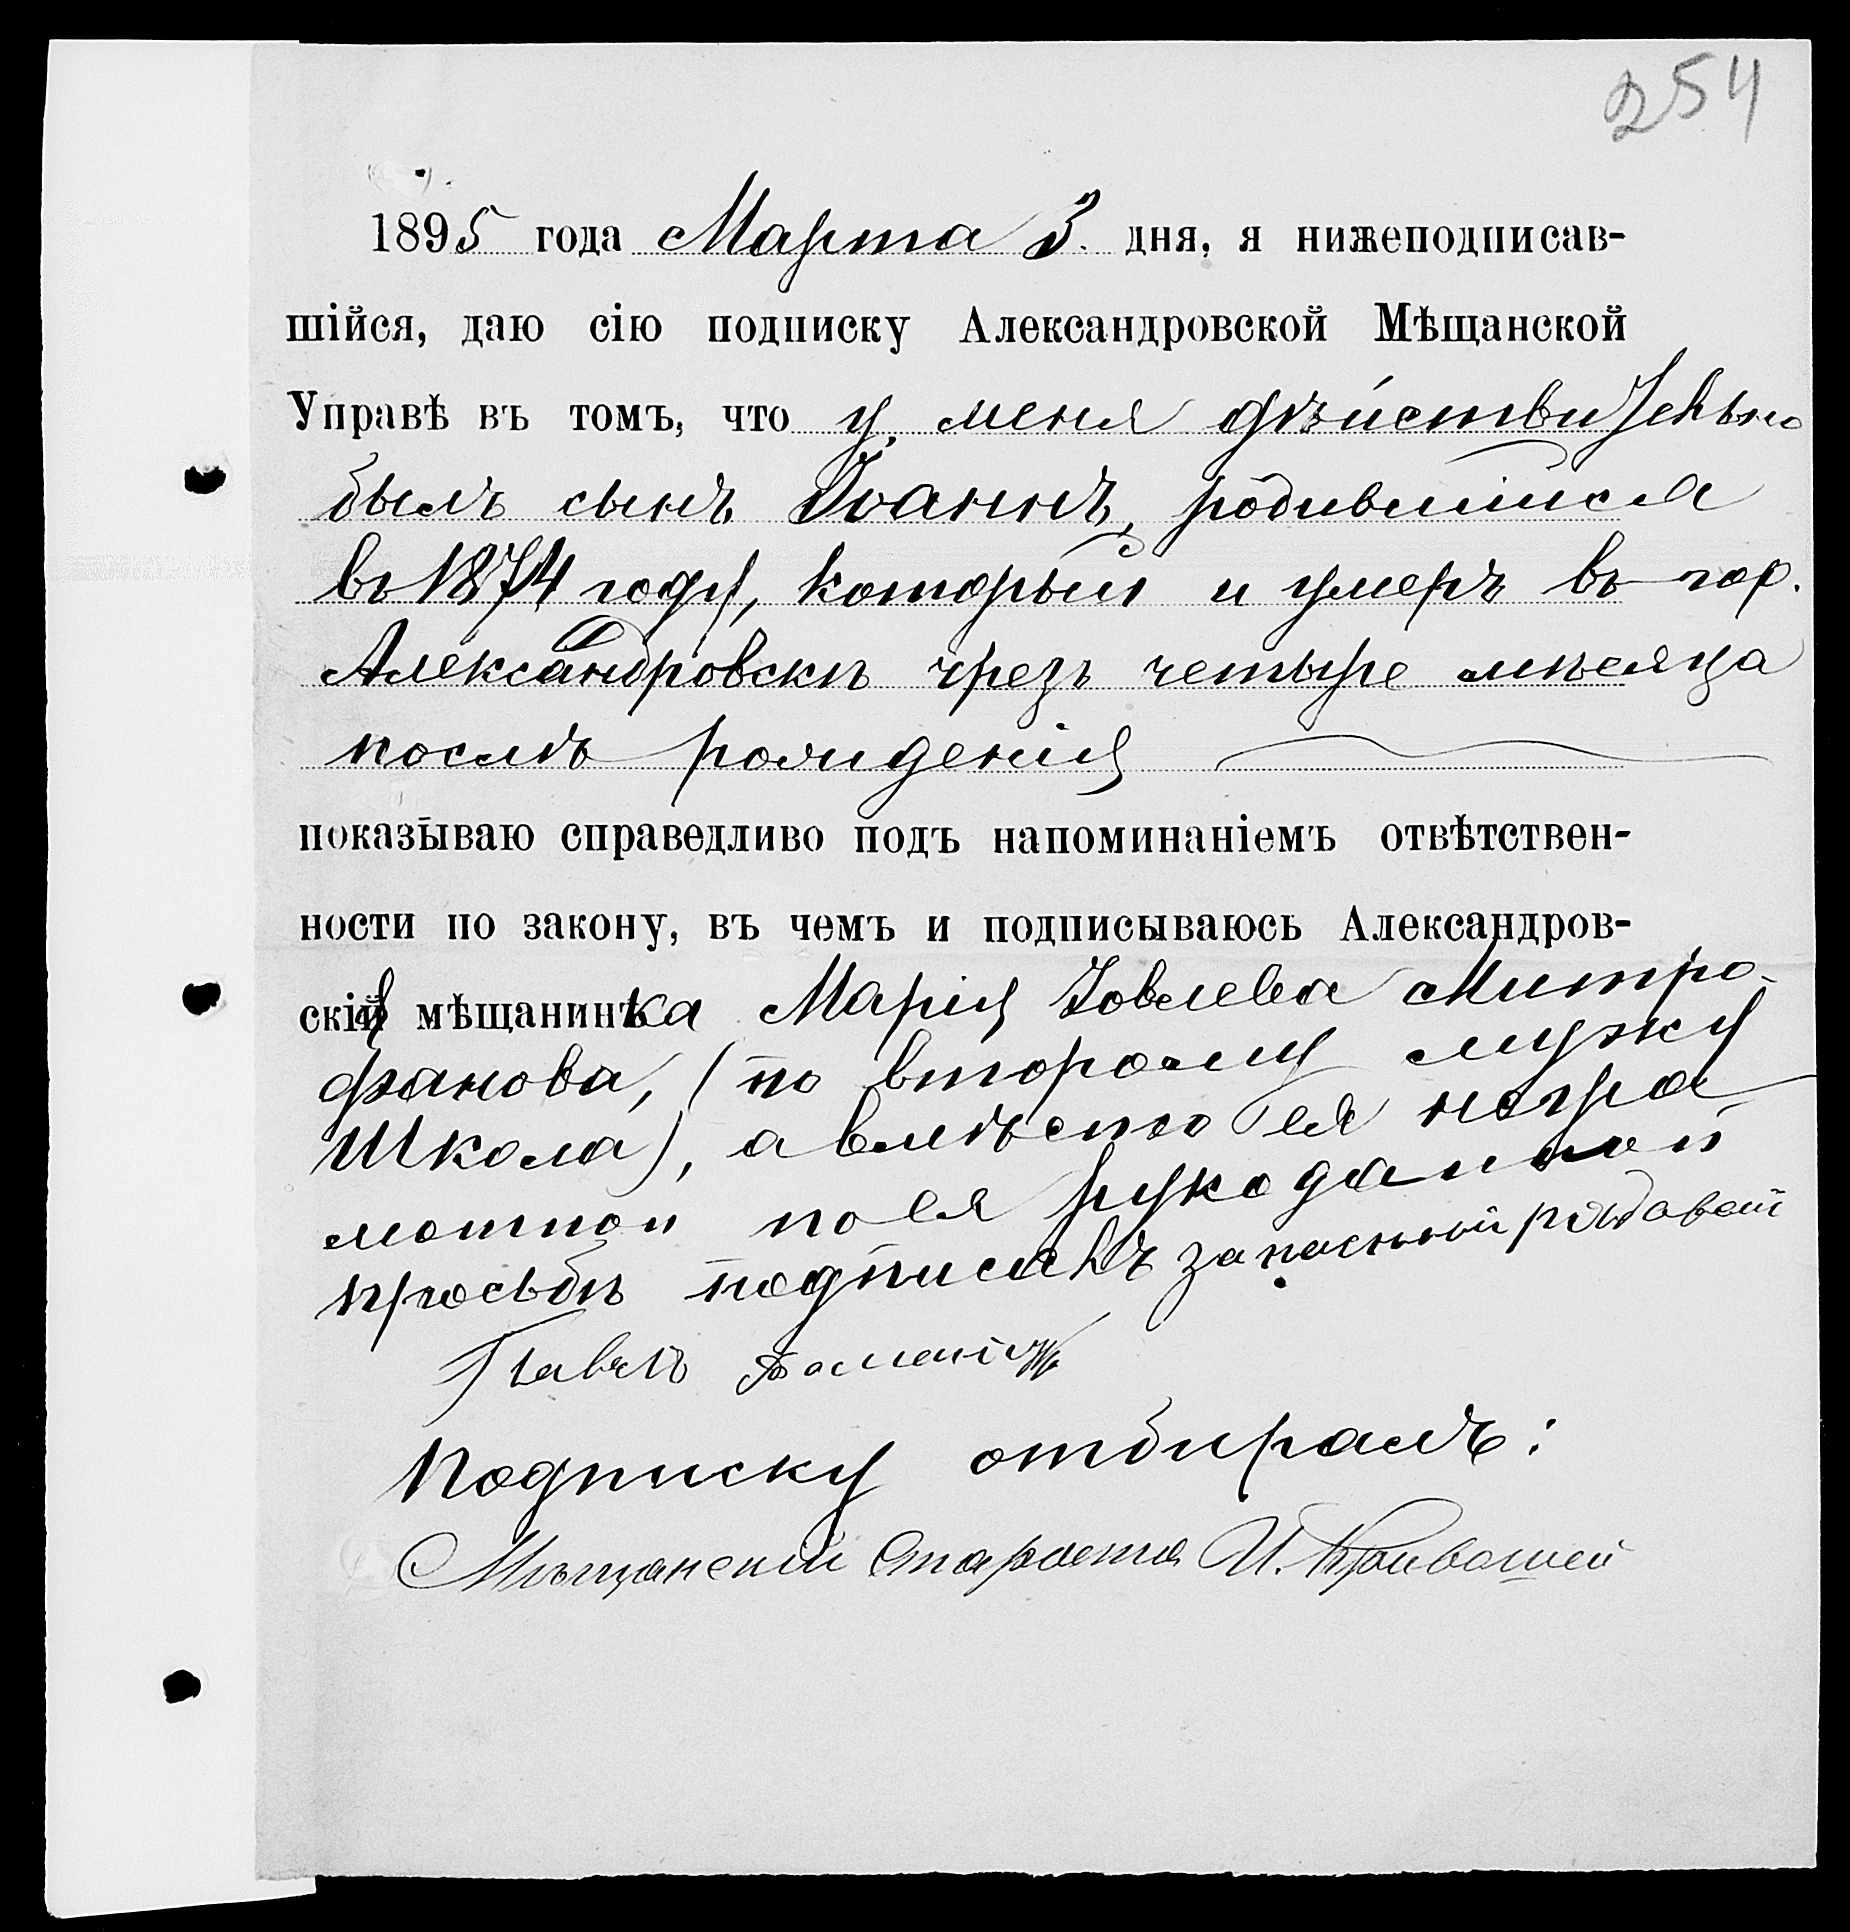 254
1895 года Марта 3. дня, я нижеподписав-
шійся, даю сію подписку Александровской Мѣщанской
Управѣ въ томъ, что у меня дѣйствительно
былъ сынъ Іоаннъ, родившійся
въ 1874 году, который и умеръ въ гор.
Александровскѣ чрезъ четыре мѣсяца
послѣ рожденія
показываю справедливо подъ напоминаніемъ отвѣтствен-
ности по закону, въ чемъ и подписываюсь Александров-
ская мѣщанинка Марія Іовлева Митро-
фанова, (по второму мужу
Школа), а вмѣсто ея негра
мотной по ея рукоданной
просьбѣ подписалъ запасный рядовой
Павелъ
Подписку отбиралъ:
Мѣщанскій Староста И. Кривошей